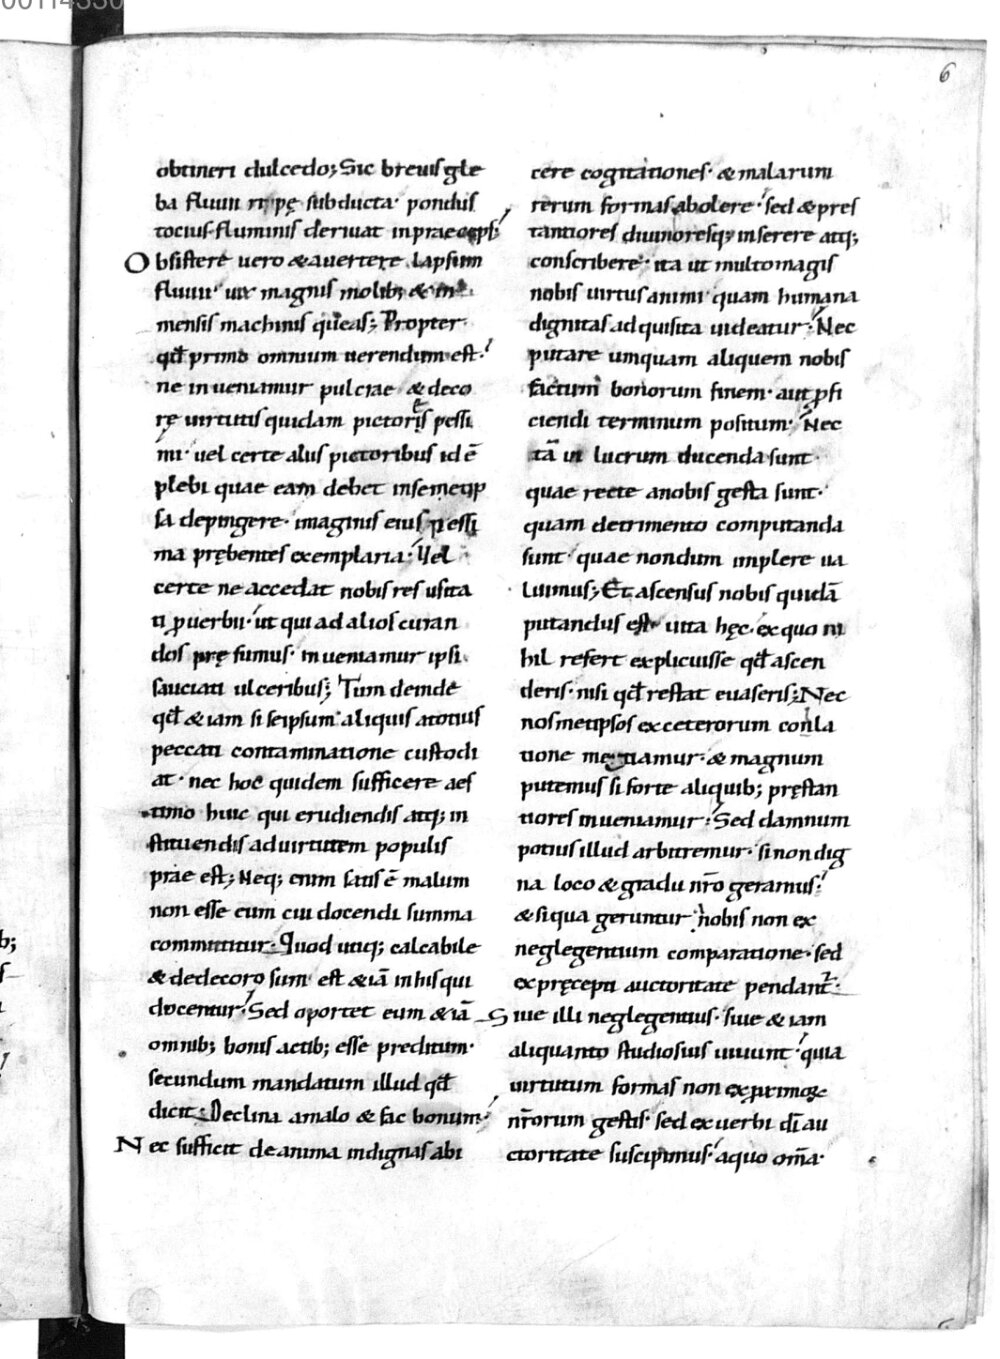 00114330
6
obtineri dulcedo; Sic breuis gle
ba fluuii ripę subducta· pondus
tocius fluminis deriuat in praeceps·
Obsistere uero & auertere lapsum
fluuii· uix magnis molib; & in
mensis machinis queas; Propter·
qđ primo omnium uerendum est·
ne inueniamur pulciae & deco
rę uirtutis quidam pictoris pessi
mi· uel certe aliis pictoribus id ē
plebi quae eam debet in semetip
sa depingere· imaginis eius pessi
ma prębentes exemplaria· Uel
certe ne accedat nobis res usita
ti ꝓuerbii· ut qui ad alios curan
dos pręsumus· inueniamur ipsi
sauciati ulceribus; Tum deinde
qđ & iam si seipsum aliquis a totius
peccati contaminatione custodi
at· nec hoc quidem sufficere aes
timo huic qui erudiendis atq; in
stituendis ad uirtutem populis
prae est; Neq; enim satis ē malum
non esse eum cui docendi summa
committitur· Quod utiq; caleabile
& dedecorosum est & iā in his qui
docentur· Sed oportet eum & iā
omnib; bonis actib; esse preditum·
secundum mandatum illud qđ
dicit; Declina a malo & fac bonum·
Nec sufficit de anima indignas abi
cere cogitationes· & malarum
rerum formas abolere· sed & pres
tantiores diuinoresq; inserere atq;
conscribere· ita ut multo magis
nobis uirtus animi quam humana
dignitas adquisita uideatur· Nec
putare umquam aliquem nobis
factum bonorum finem· aut ꝓfi
ciendi terminum positum· Nec
tā in lucrum ducenda sunt
quae recte a nobis gesta sunt·
quam detrimento computanda
sunt· quae nondum implere ua
luimus; Et ascensus nobis quidā
putandus est uita hęc· ex quo ni
hil refert explicuisse qđ ascen
deris· nisi qđ restat euaseris; Nec
nosmetipsos ex ceterorum conla
tione metiamur· & magnum
putemus si forte aliquib; pręstan
tiores inueniamur· Sed damnum
potius illud arbitremur· si non dig
na loco & gradu nr̄o geramus·
& si qua geruntur nobis non ex
neglegentium comparatione· sed
ex pręcepti auctoritate pendant·
Siue illi neglegentius· siue & iam
aliquanto studiosius uiuunt· quia
uirtutum formas non ex primore
nr̄orum gestis· sed ex uerbi dī au
ctoritate suscipimus· a quo om̄a·